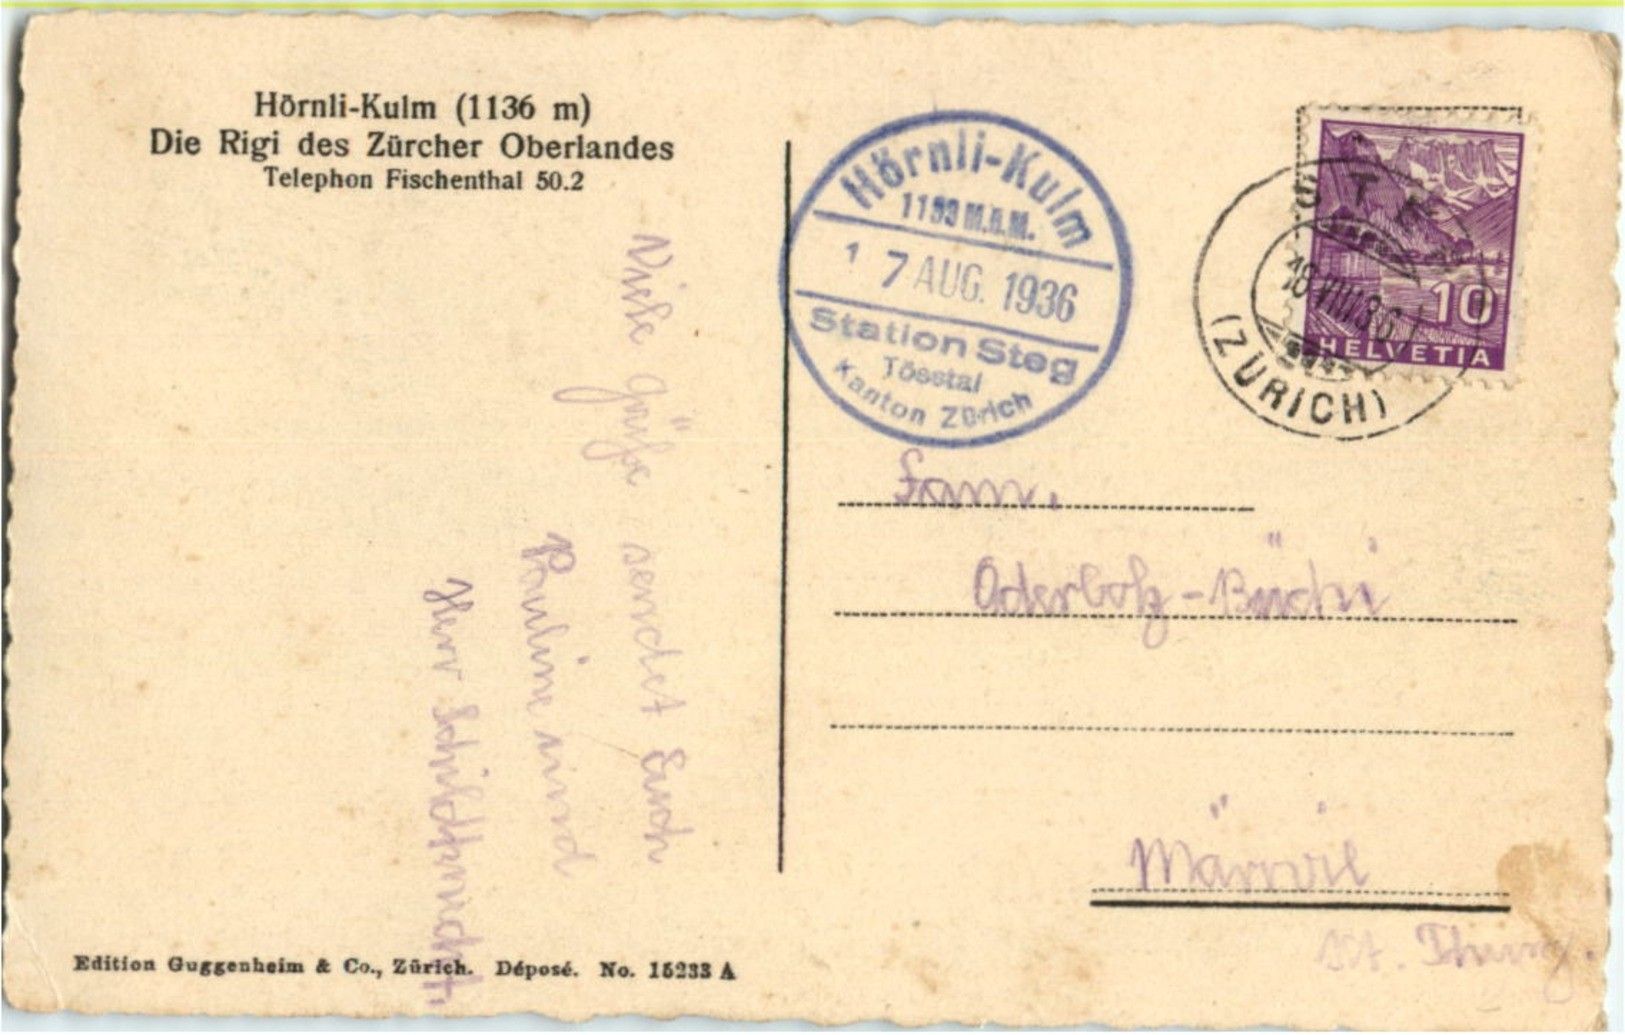 Hörnli-Kulm (1136 m)
Die Rigi des Zürcher Oberlandes
Telephon Fischenthal 50.2
Viele Grüße sendet Euch
Pauline und
Herr
Edition Guggenheim & Co., Zürich. Déposé. No. 15233 A
Hörnli-Kulm
M.ü.M.
17 AUG. 1936
Station Steg
Tösstal
Kanton Zürich
18.VIII.36
(ZÜRICH)
10
HELVETIA
Fam.
Märwil
Kt. Thurg.